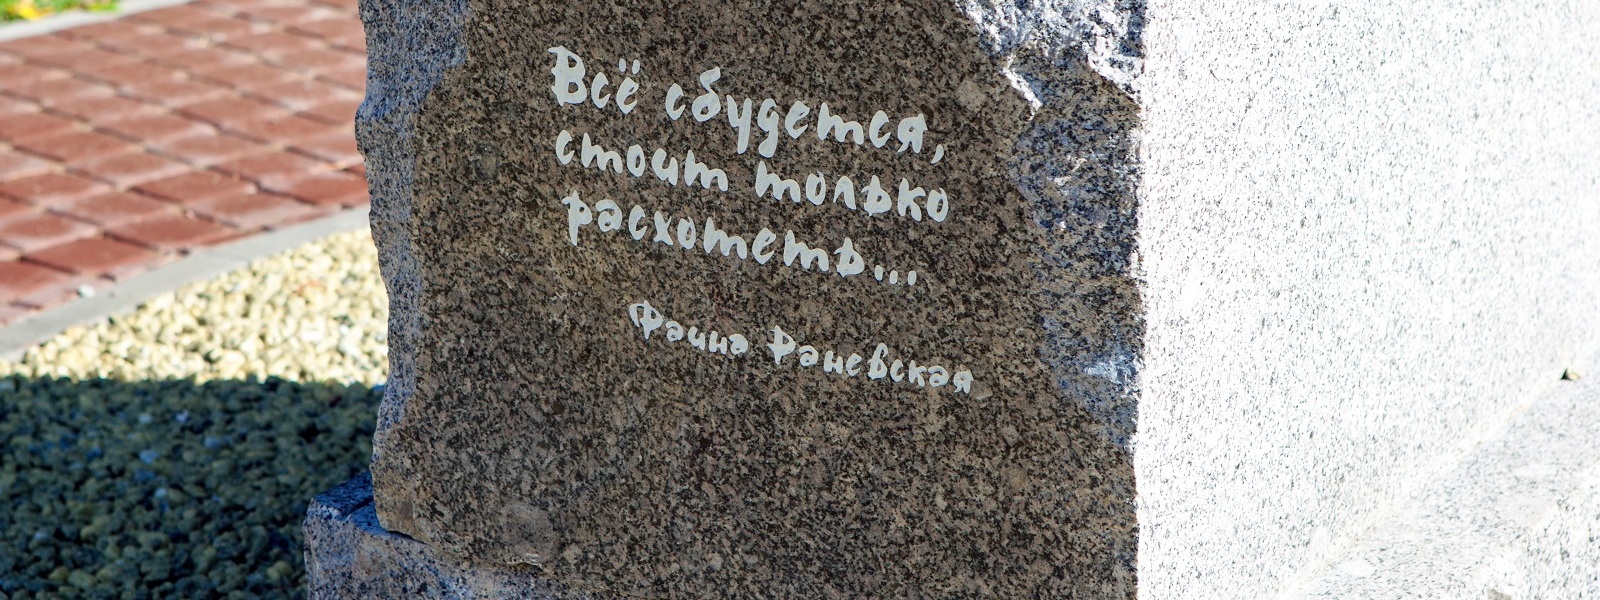 Всё сбудется,
стоит только
расхотеть...
Фаина Раневская